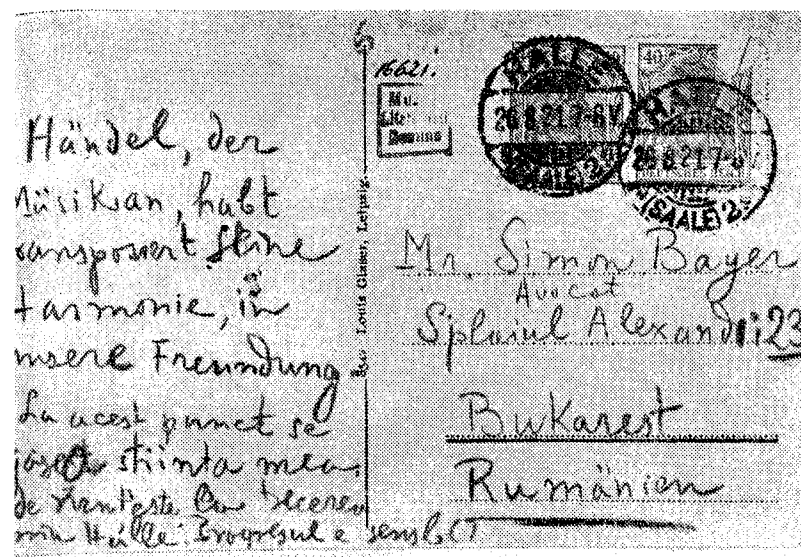 Händel, der
Müsikan, habt
transponiert seine
Harmonie, in
unsere Freundung.
La acest punct se
găsește stiinta mea
de nemțește la trecerea
prin Halle. Progresul e
16621.
Louis Glaser, Leipzig.
HALLE
26.8.21.7-8V
(SAALE)2
40
26.8.21.7-8V
(SAALE)2
Mr. Simon Bayer
Avocat
Splaiul Alexandri 23
Bukarest
Rumänien